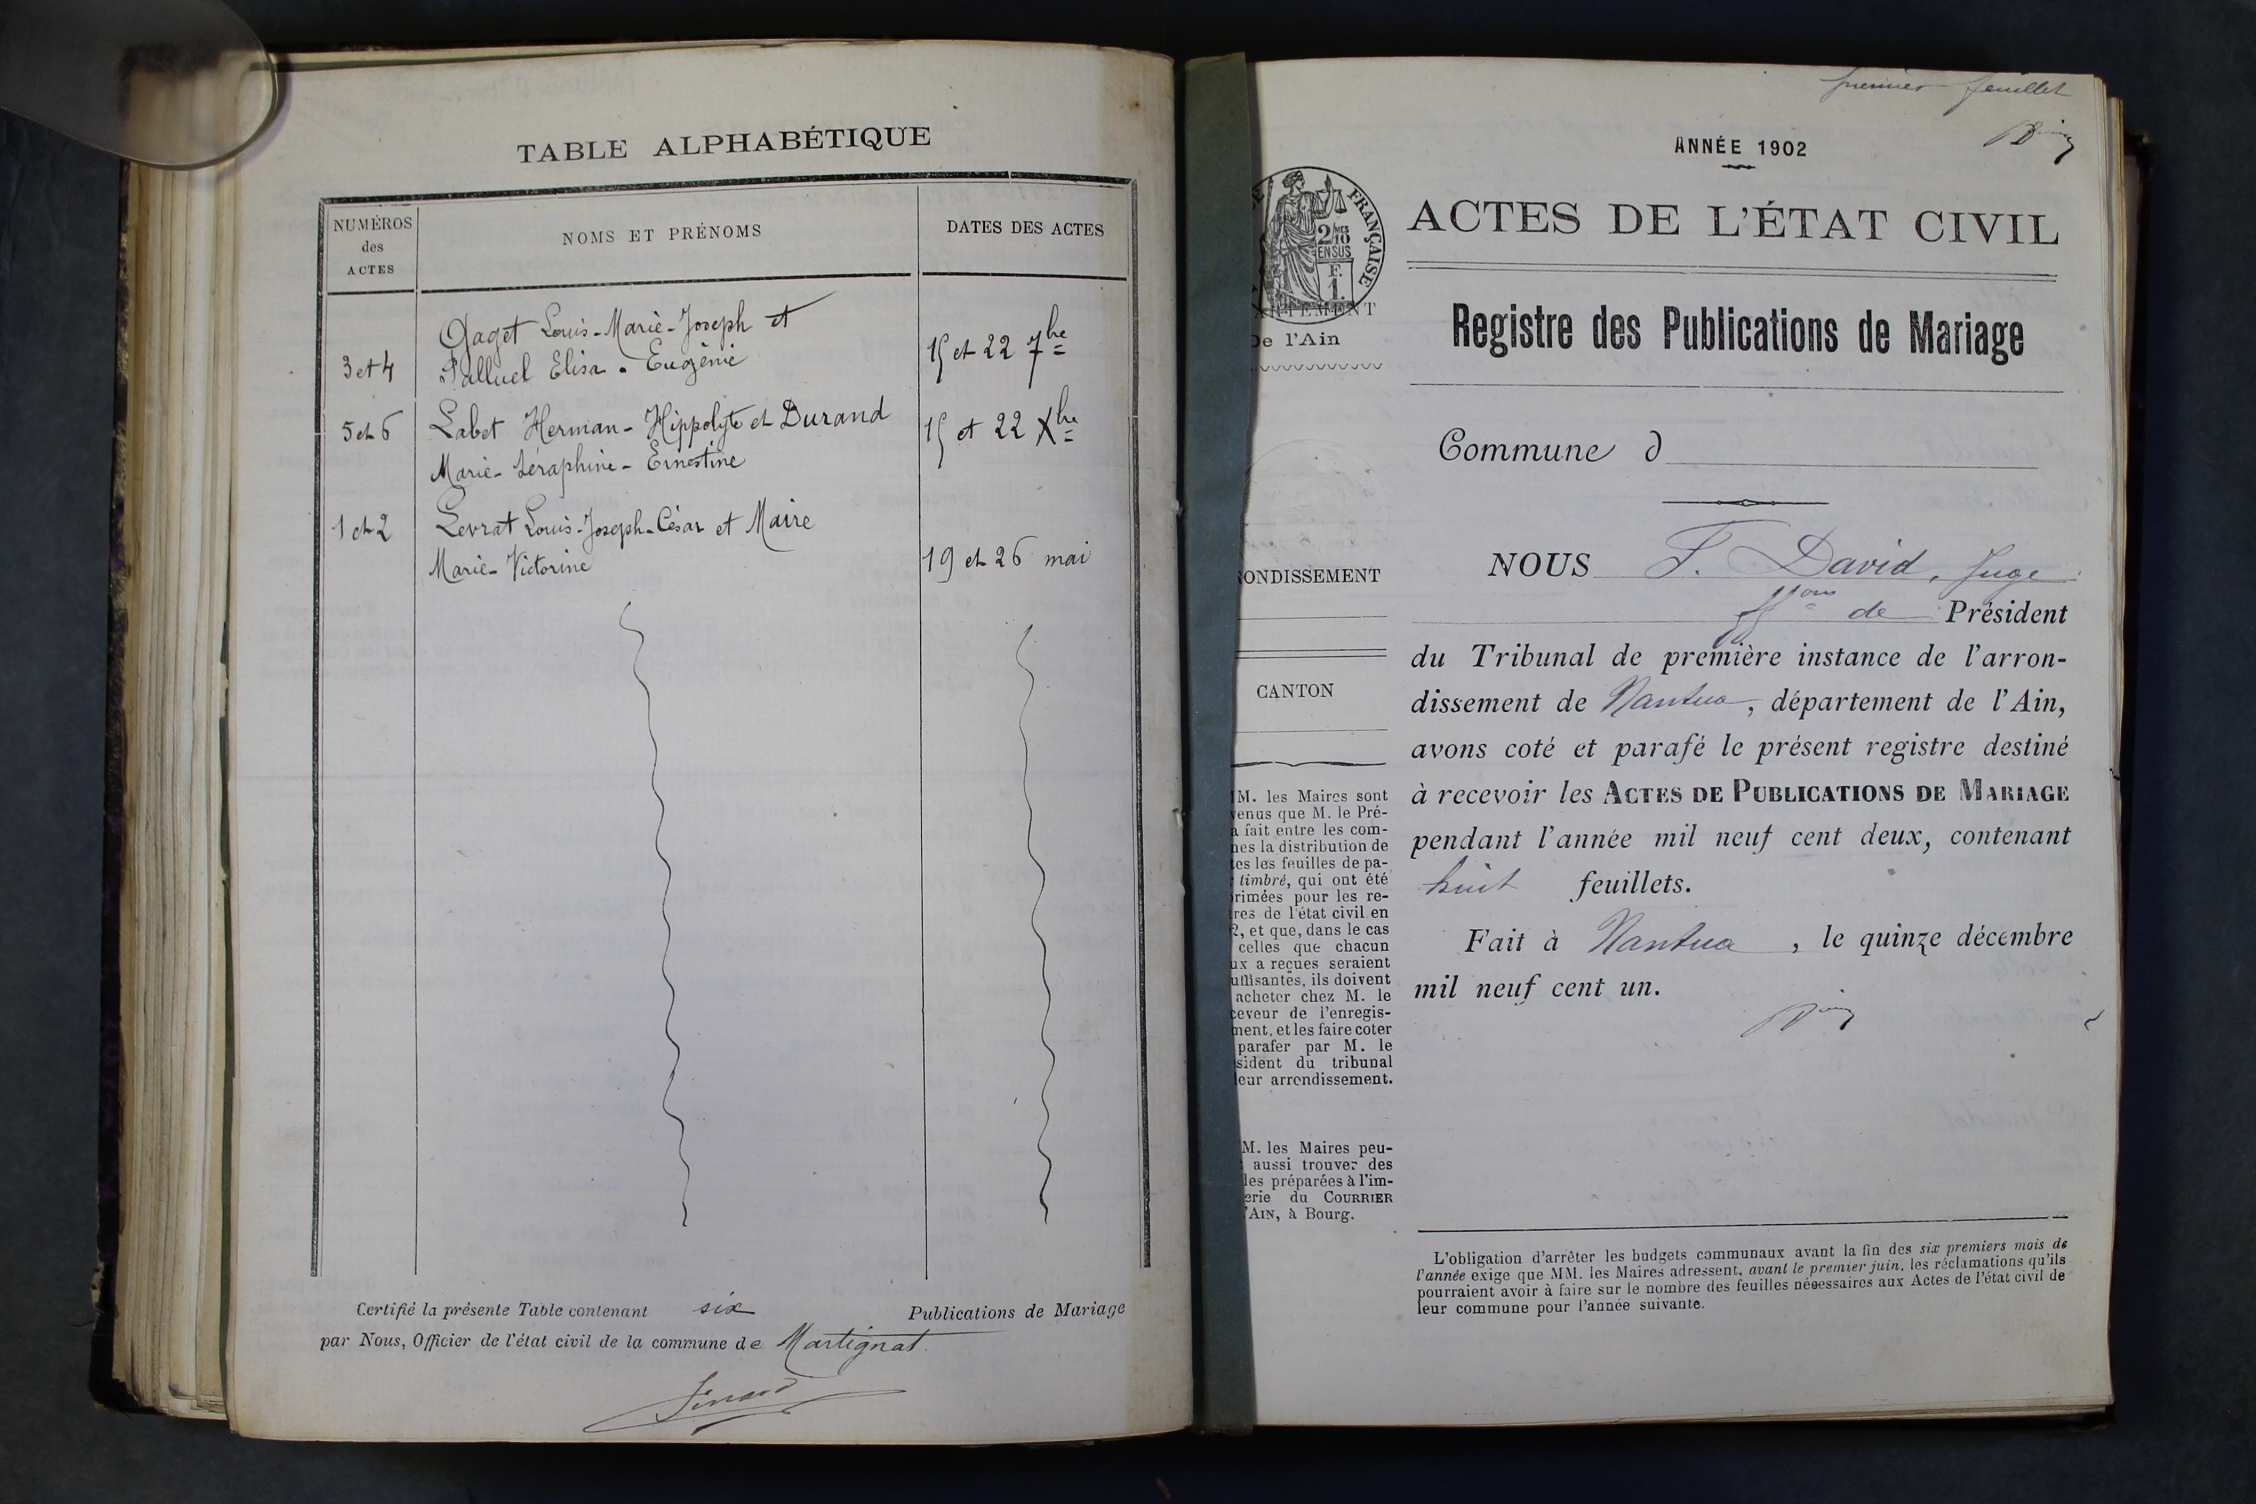 TABLE ALPHABÉTIQUE
NUMÉROS
des
ACTES
NOMS ET PRÉNOMS
DATES DES ACTES
3 et 4
Gaget Louis-Marie-Joseph et
Palluel Elisa. Eugénie
15 et 22 7bre
5 et 6
Labet Herman-Hippolyte et Durand
Marie-Séraphine-Ernestine
15 et 22 Xbre
1 et 2
Levrat Louis-Joseph-César et Maire
Marie-Victorine
19 et 26 mai
Certifié la présente Table contenant six Publications de Mariage
par Nous, Officier de l'état civil de la commune de Martignat.
premier feuillet
ANNÉE 1902
ACTES DE L'ÉTAT CIVIL
FRANÇAISE
2/10
EN SUS
F.
1.
RTEMENT
De l'Ain
Registre des Publications de Mariage
Commune d
NOUS F. David, Juge
ffons de Président
du Tribunal de première instance de l'arron-
dissement de Nantua, département de l'Ain,
avons coté et parafé le présent registre destiné
à recevoir les ACTES DE PUBLICATIONS DE MARIAGE
pendant l'année mil neuf cent deux, contenant
huit feuillets.
Fait à Nantua, le quinze décembre
mil neuf cent un.
ONDISSEMENT
CANTON
M. les Maires sont
venus que M. le Pré-
a fait entre les com-
nes la distribution de
tes les feuilles de pa-
timbré, qui ont été
rimées pour les re-
res de l'état civil en
2, et que, dans le cas
celles que chacun
ux a reçues seraient
uffisantes, ils doivent
acheter chez M. le
ceveur de l'enregis-
ment, et les faire coter
parafer par M. le
sident du tribunal
leur arrondissement.
M. les Maires peu-
aussi trouver des
les préparées à l'im-
erie du COURRIER
l'AIN, à Bourg.
L'obligation d'arrêter les budgets communaux avant la fin des six premiers mois de
l'année exige que MM. les Maires adressent, avant le premier juin, les réclamations qu'ils
pourraient avoir à faire sur le nombre des feuilles nécessaires aux Actes de l'état civil de
leur commune pour l'année suivante.